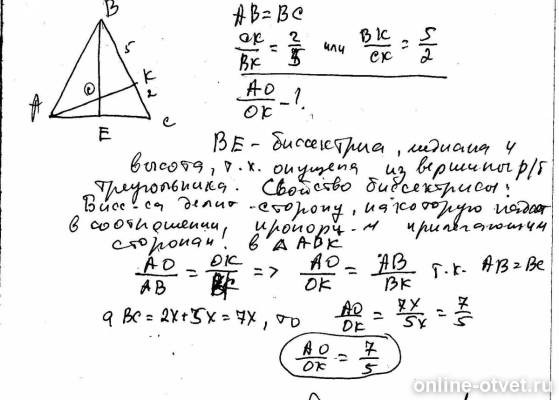 B
AB = BC
5
CK/BK = 2/5 или BK/CK = 5/2
O
K
2
AO/OK - ?
A
E
C
BE - биссектриса, медиана и
высота, т.к. опущена из вершины р/б
треугольника. Свойство биссектрисы:
Бисс-са делит сторону, на которую падает
в соотношении, пропорц-м прилегающим
сторонам. в △ ABK
AO/AB = OK/BK => AO/OK = AB/BK т.к. AB = BC
а BC = 2x+5x = 7x, то AO/OK = 7x/5x = 7/5
AO/OK = 7/5
online-otvet.ru